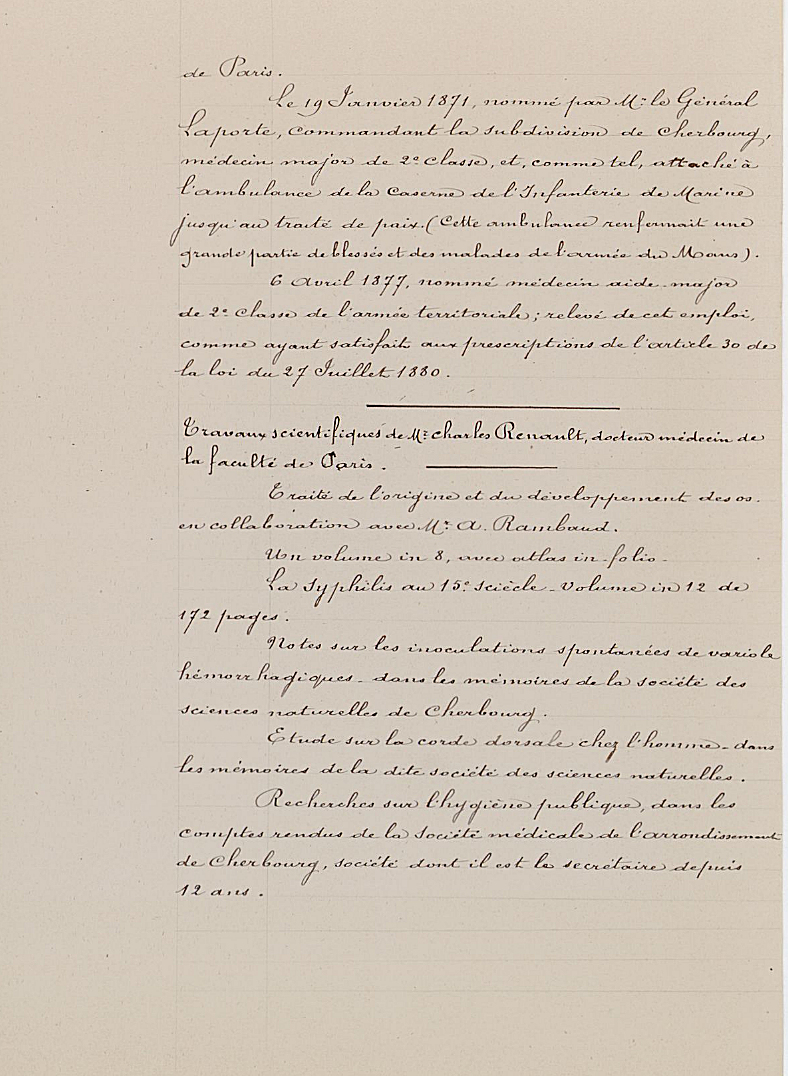 de Paris.
Le 19 Janvier 1871, nommé par Mr le Général
Laporte, commandant la subdivision de Cherbourg,
médecin major de 2e Classe, et, comme tel, attaché à
l'ambulance de la Caserne de l'Infanterie de Marine
jusqu'au traité de paix. (Cette ambulance renfermait une
grande partie de blessés et des malades de l'armée du Mans).
6 Avril 1877, nommé médecin aide-major
de 2e Classe de l'armée territoriale; relevé de cet emploi,
comme ayant satisfait aux prescriptions de l'article 30 de
la loi du 27 Juillet 1880.
Travaux scientifiques de Mr Charles Renault, docteur médecin de
la faculté de Paris.
Traité de l'origine et du développement des os.
en collaboration avec Mr A. Rambaud.
Un volume in 8, avec atlas in-folio-
La Syphilis au 15e Sciècle - Volume in 12 de
172 pages.
Notes sur les inoculations spontanées de variole
hémorrhagiques - dans les mémoires de la société des
sciences naturelles de Cherbourg.
Etude sur la corde dorsale chez l'homme - dans
les mémoires de la dite société des sciences naturelles.
Recherches sur l'hygiène publique, dans les
comptes rendus de la Société médicale de l'arrondissement
de Cherbourg, société dont il est le secrétaire depuis
12 ans.